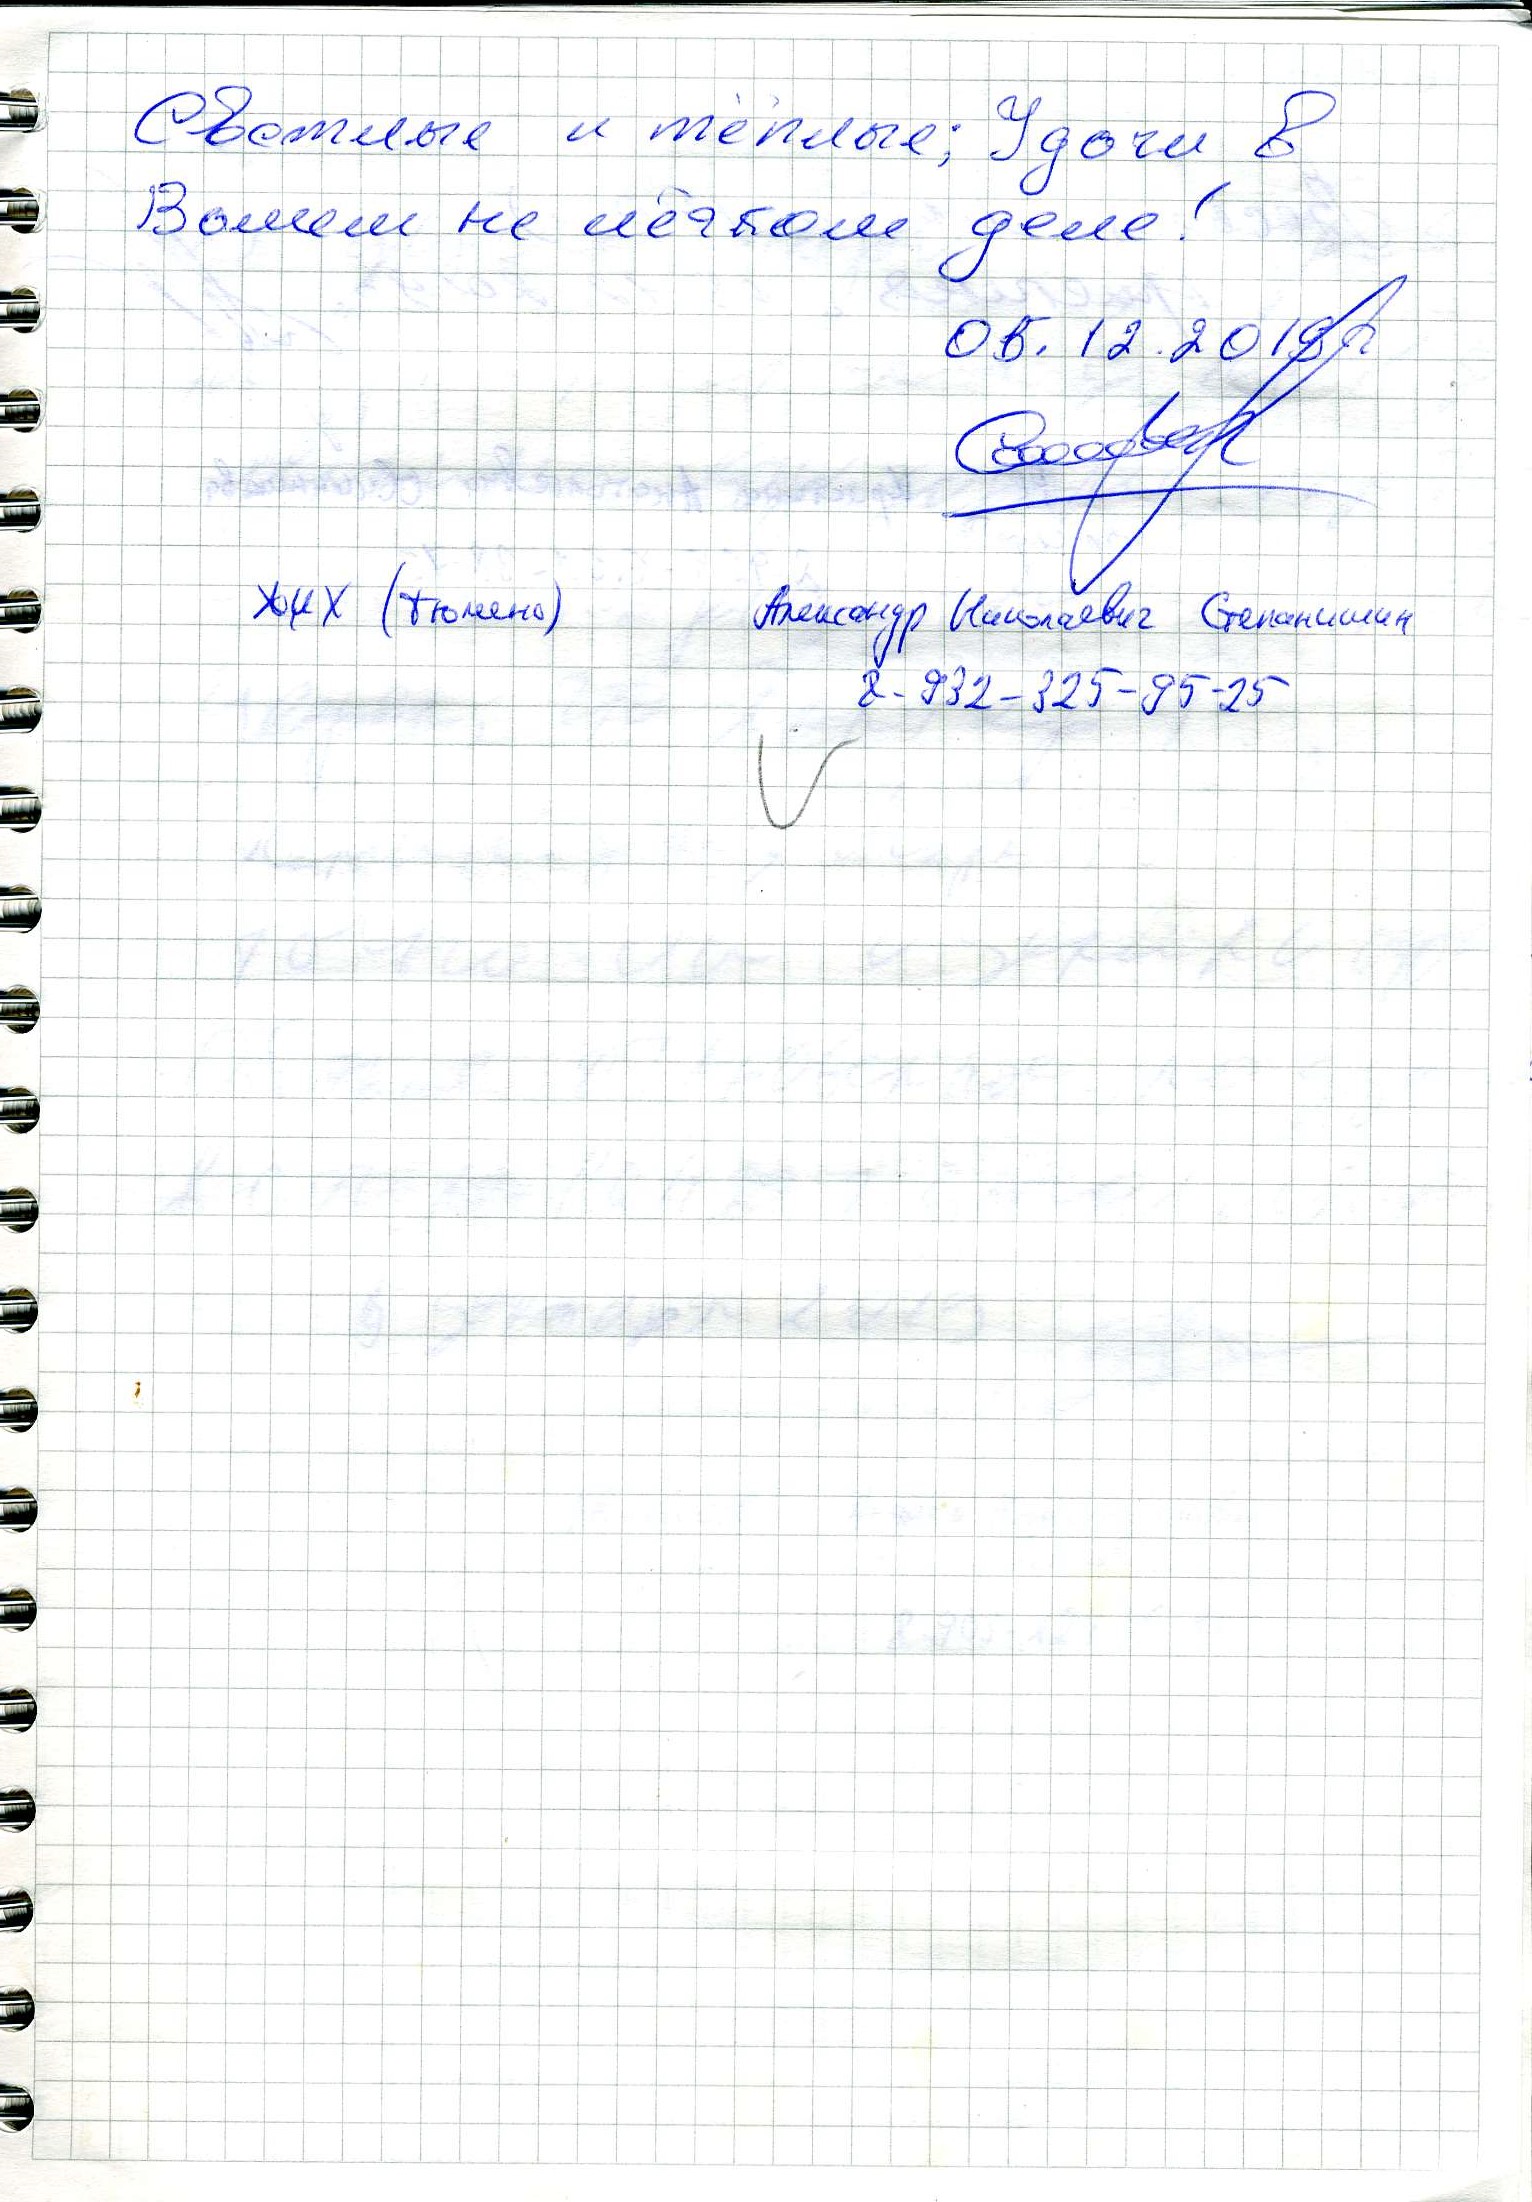 Светлые и тёплые; Удачи в
Вашем не лёгком деле!
05.12.2018г
(Тюмень) Александр Николаевич Степанишин
8-932-325-95-25